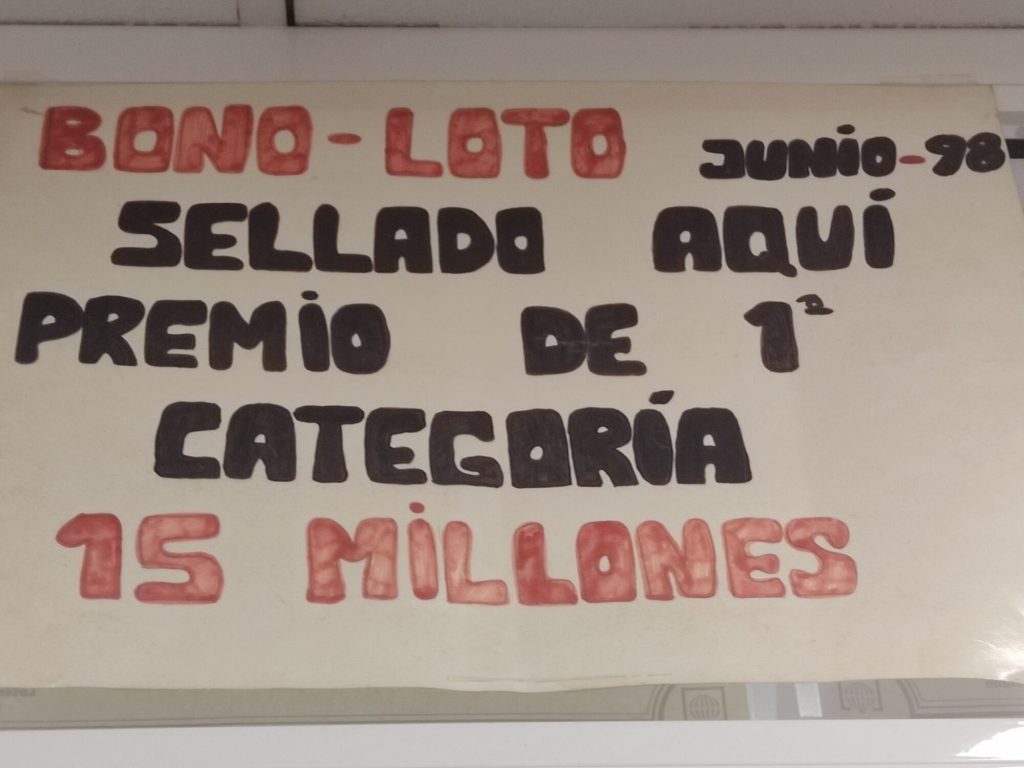 BONO-LOTO JUNIO-98
SELLADO AQUÍ
PREMIO DE 1ª
CATEGORÍA
15 MILLONES